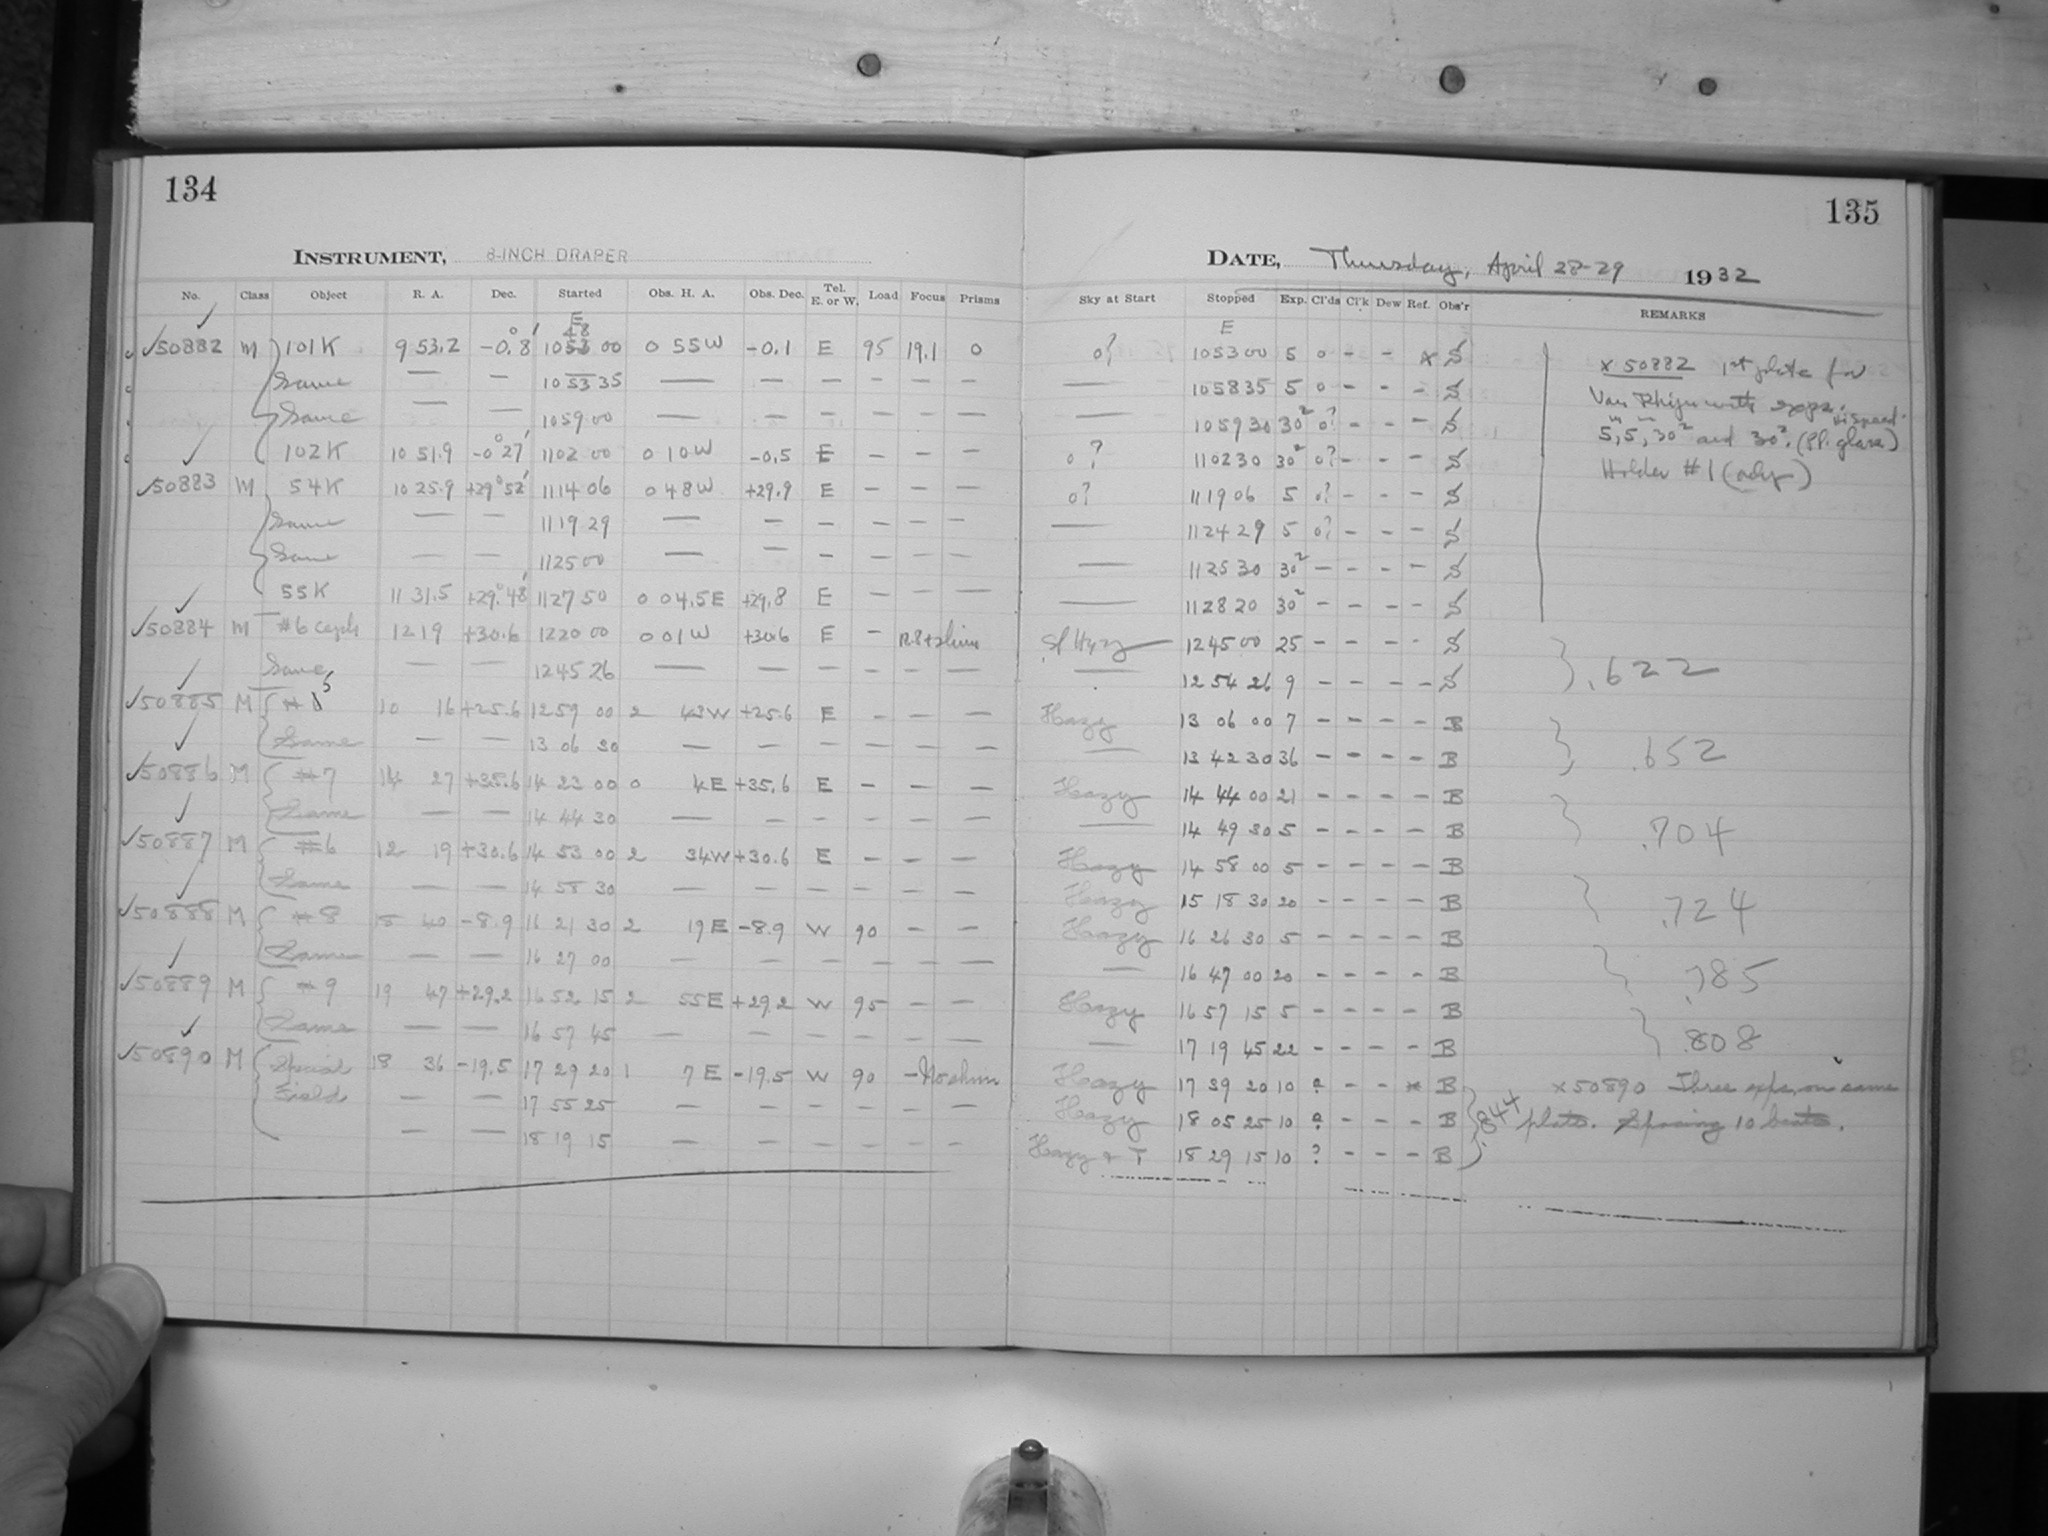 134
INSTRUMENT, 8-INCH DRAPER
No. Class Object R. A. Dec. Started Obs. H. A. Obs. Dec. Tel. E. or W. Load Focus Prisms
E
48
✓50882 M 101K 9 53.2 -0.8' 10 53 00 0 55W -0.1 E 95 19.1 0
Same — — 10 53 35 — — — — — —
Same — — 10 59 00 — — — — — —
102K 10 51.9 -0°27' 11 02 00 0 10W -0.5 E — — —
✓50883 M 54K 10 25.9 +29°52' 11 14 06 0 48W +29.9 E — — —
Same — — 11 19 29 — — — — — —
Same — — 11 25 00 — — — — — —
55K 11 31.5 +29°48' 11 27 50 0 04.5E +29.8 E — — —
✓50884 M #6 ceph 12 19 +30.6 12 20 00 0 01W +30.6 E —
Same — — 12 45 26 — — — — — —
✓50885 M #5 10 16 +25.6 12 59 00 2 43W +25.6 E — — —
Same — — 13 06 30 — — — — — —
✓50886 M #7 14 27 +35.6 14 23 00 0 4E +35.6 E — — —
Same — — 14 44 30 — — — — — —
✓50887 M #6 12 19 +30.6 14 53 00 2 34W +30.6 E — — —
Same — — 14 58 30 — — — — — —
✓50888 M #8 15 40 -8.9 16 21 30 2 19E -8.9 W 90 — —
Same — — 16 27 00 — — — — — —
✓50889 M #9 19 47 +29.2 16 52 15 2 55E +29.2 W 95 — —
Same — — 16 57 45 — — — — — —
✓50890 M Special 18 36 -19.5 17 29 20 1 7E -19.5 W 90 — No shim
Field — — 17 55 25 — — — — — —
— — 18 19 15 — — — — — —
135
DATE, Thursday, April 28-29 1932
Sky at Start Stopped Exp. Cl'ds Cl'k Dew Ref. Obs'r REMARKS
E
0? 10 53 00 5 0 — — x S
— 10 58 35 5 0 — — S
— 10 59 30 30² 0? — — — S
0? 11 02 30 30² 0? — — — S
0? 11 19 06 5 0? — — — S
— 11 24 29 5 0? — — — S
— 11 25 30 30² — — — — S
— 11 28 20 30² — — — — S
Sl Hazy 12 45 00 25 — — — — S
— 12 54 26 9 — — — — S
Hazy 13 06 00 7 — — — — B
— 13 42 30 36 — — — — B
Hazy 14 44 00 21 — — — — B
— 14 49 30 5 — — — — B
Hazy 14 58 00 5 — — — — B
Hazy 15 18 30 20 — — — — B
Hazy 16 26 30 5 — — — — B
— 16 47 00 20 — — — — B
Hazy 16 57 15 5 — — — — B
— 17 19 45 22 — — — — B
Hazy 17 39 20 10 ? — — * B
Hazy 18 05 25 10 ? — — — B
Hazy + T 18 29 15 10 ? — — — B
x 50882 1st plate for
Van Rhijn with exps.
5, 5, 30² and 30². (Pl. glass)
Holder #1 (only)
.622
.652
.704
.724
.785
.808
.844
x50890 Three exps. on same
plate. Spacing 10 beats.